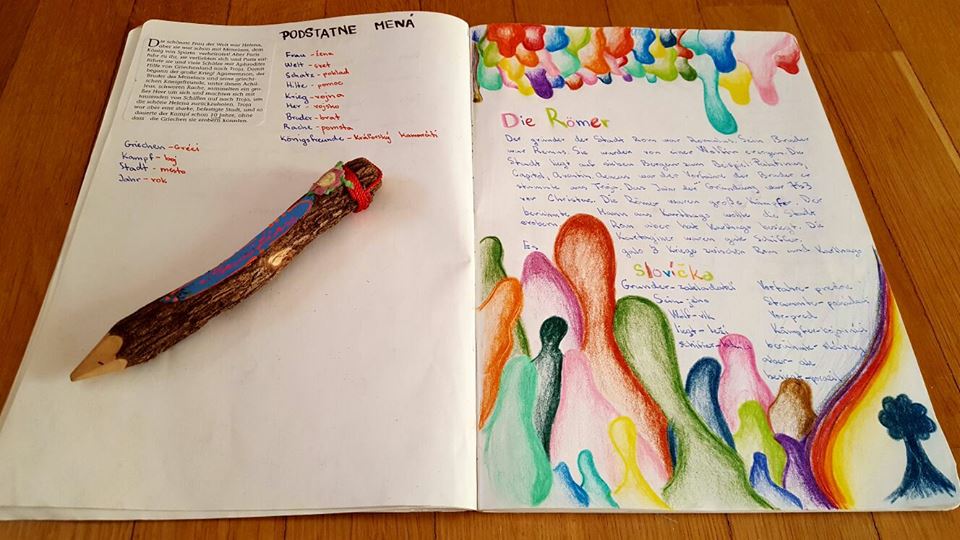 Die schönste Frau der Welt war Helena,
aber sie war schon mit Menelaus, dem
König von Sparta verheiratet! Aber Paris
fuhr zu ihr, sie verliebten sich und Paris ent-
führte sie und viele Schätze mit Aphrodites
Hilfe von Griechenland nach Troja. Damit
begann der große Krieg! Agamemnon, der
Bruder des Menelaus und seine griechi-
schen Königsfreunde, unter ihnen Achil-
leus, schworen Rache, sammelten ein gro-
ßes Heer um sich und machten sich mit
tausenden von Schiffen auf nach Troja, um
die schöne Helena zurückzuholen. Troja
war aber eine starke, befestigte Stadt, und so
dauerte der Kampf schon 10 Jahre, ohne
dass die Griechen sie erobern konnten.
PODSTATNE MENÁ
Frau - žena
Welt - svet
Schatz - poklad
Hilfe - pomoc
Krieg - vojna
Her - vojsko
Bruder - brat
Rache - pomsta
Königsfreunde - Kráľovský kamaráti
Griechen - Gréci
Kampf - boj
Stadt - mesto
Jahr - rok
Die Römer
Der grunder der Stadt Rom war Romulus. Sein Bruder
war Remus. Sie wurden von einer erzogen. Die
Stadt liegt auf sieben Bergen zum Bespiel Palatinus,
Capitol, Aventin. Aeneas war der Vorfahre der Bruder er
stammte aus Troja. Das Jahr der Grundung war 753
vor Christus. Die Römer waren große Kämpfer. Der
berümte Mann aus Karthago wollte die Stadt
erobern Rom aber hat Karthago besiegt. Die
Kartaginer waren gute Schifer.
Es gab 3 Kriege zwischen Rom und Karthago
slovíčka
Grunder - zakladateľ
Sein - jeho
Wolf - vlk
liegt - leží
schifer -
Vorfahre - predok
Stammte -
Vor - pred
Kämpfer - bojovník
berümte - slávny
aber - ale
besiegt - porazil